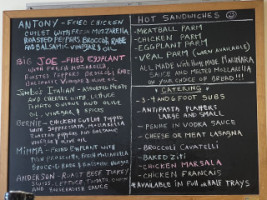 ANTONY - FRIED CHICKEN
CUTLET WITH FRESH MOZZARELLA
ROASTED PEPPERS, BROCCOLI RABE
AND BALSAMIC VINEGAR & OIL
BIG JOE - FRIED EGGPLANT
WITH FRESH MOZZARELLA
ROASTED PEPPERS
BALSAMIC VINEGAR & OIL
Italian - ASSORTED MEATS
AND CHEESE WITH LETTUCE
TOMATO ONIONS AND OLIVE
OIL, VINEGAR, & SPICES
GEENIE - CHICKEN CUTLET TOPPED
WITH MOZZARELLA
ROASTED PEPPERS AND BALSAMIC
VINEGAR AND OLIVE OIL
MIMMA - FRIED EGGPLANT WITH
FRESH MOZZARELLA
ANDERSON - ROAST BEEF TURKEY
SWISS LETTUCE TOMATO ONION
AND
HOT SANDWICHES
- MEATBALL PARM
- CHICKEN PARM
- EGGPLANT PARM
- VEAL PARM (WHEN AVAILABLE)
ALL MADE WITH HOME MADE MARINARA
SAUCE AND MELTED MOZZARELLA
IN YOUR CHOICE OF BREAD!!!
CATERING
- 3 - 4 AND 6 FOOT SUBS
- ANTIPASTA PLATTERS
LARGE AND SMALL
- PENNE IN VODKA SAUCE
- CHEESE OR MEAT LASAGNA
- BROCCOLI CAVATELLI
- BAKED ZITI
- CHICKEN MARSALA
- CHICKEN FRANCAIS
*AVAILABLE IN FULL OR HALF TRAYS